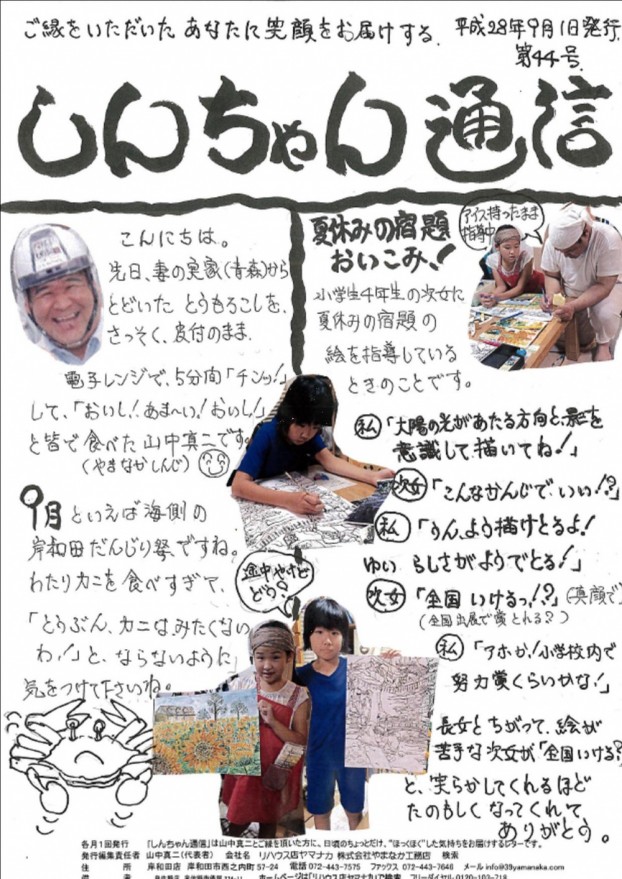 ご縁をいただいた あなたに笑顔をお届けする。
平成28年9月1日発行
第44号
しんちゃん通信
こんにちは。
先日、妻の実家(青森)から
とどいた とうもろこしを、
さっそく、皮付のまま、
電子レンジで、5分間「チンッ!」
して、「おいし!あま〜い!おいし!」
と皆で食べた山中真二です。
(やまなかしんじ)
9月といえば海側の
岸和田だんじり祭ですね。
わたりカニを食べすぎて、
「とうぶん、カニはみたくない
わ!」と、ならないように
気をつけて下さいね。
夏休みの宿題
おいこみ!
アイス持ったまま
指導中
小学生4年生の次女に
夏休みの宿題の
絵を指導している
ときのことです。
私「太陽の光があたる方向と、影を
意識して描いてね!」
次女「こんなかんじで、いい!?」
私「うん、よう描けとるよ!
ゆい らしさがようでとる!」
次女「全国 いけるっ!?」(真顔で)
(全国出展で賞とれる?)
私「アホか!小学校内で
努力賞くらいかな!」
途中やけど
どう?
長女とちがって、絵が
苦手な次女が「全国いける?」
と、笑らかしてくれるほど
たのもしくなってくれて
ありがとう。
各月1回発行 「しんちゃん通信」は山中真二とご縁を頂いた方に、日頃のちょっとだけ、"ほっくほく"した気持ちをお届けするレターです。
発行編集責任者 山中真二(代表者) 会社名 リハウス店ヤマナカ 株式会社やまなか工務店 検索
住 所 岸和田店 岸和田市西之内町57-24 電話 072-443-7575 ファックス 072-443-7646 メール info@39yamanaka.com
備 考 ホームページは「リハウス店ヤマナカ」で検索 フリーダイヤル